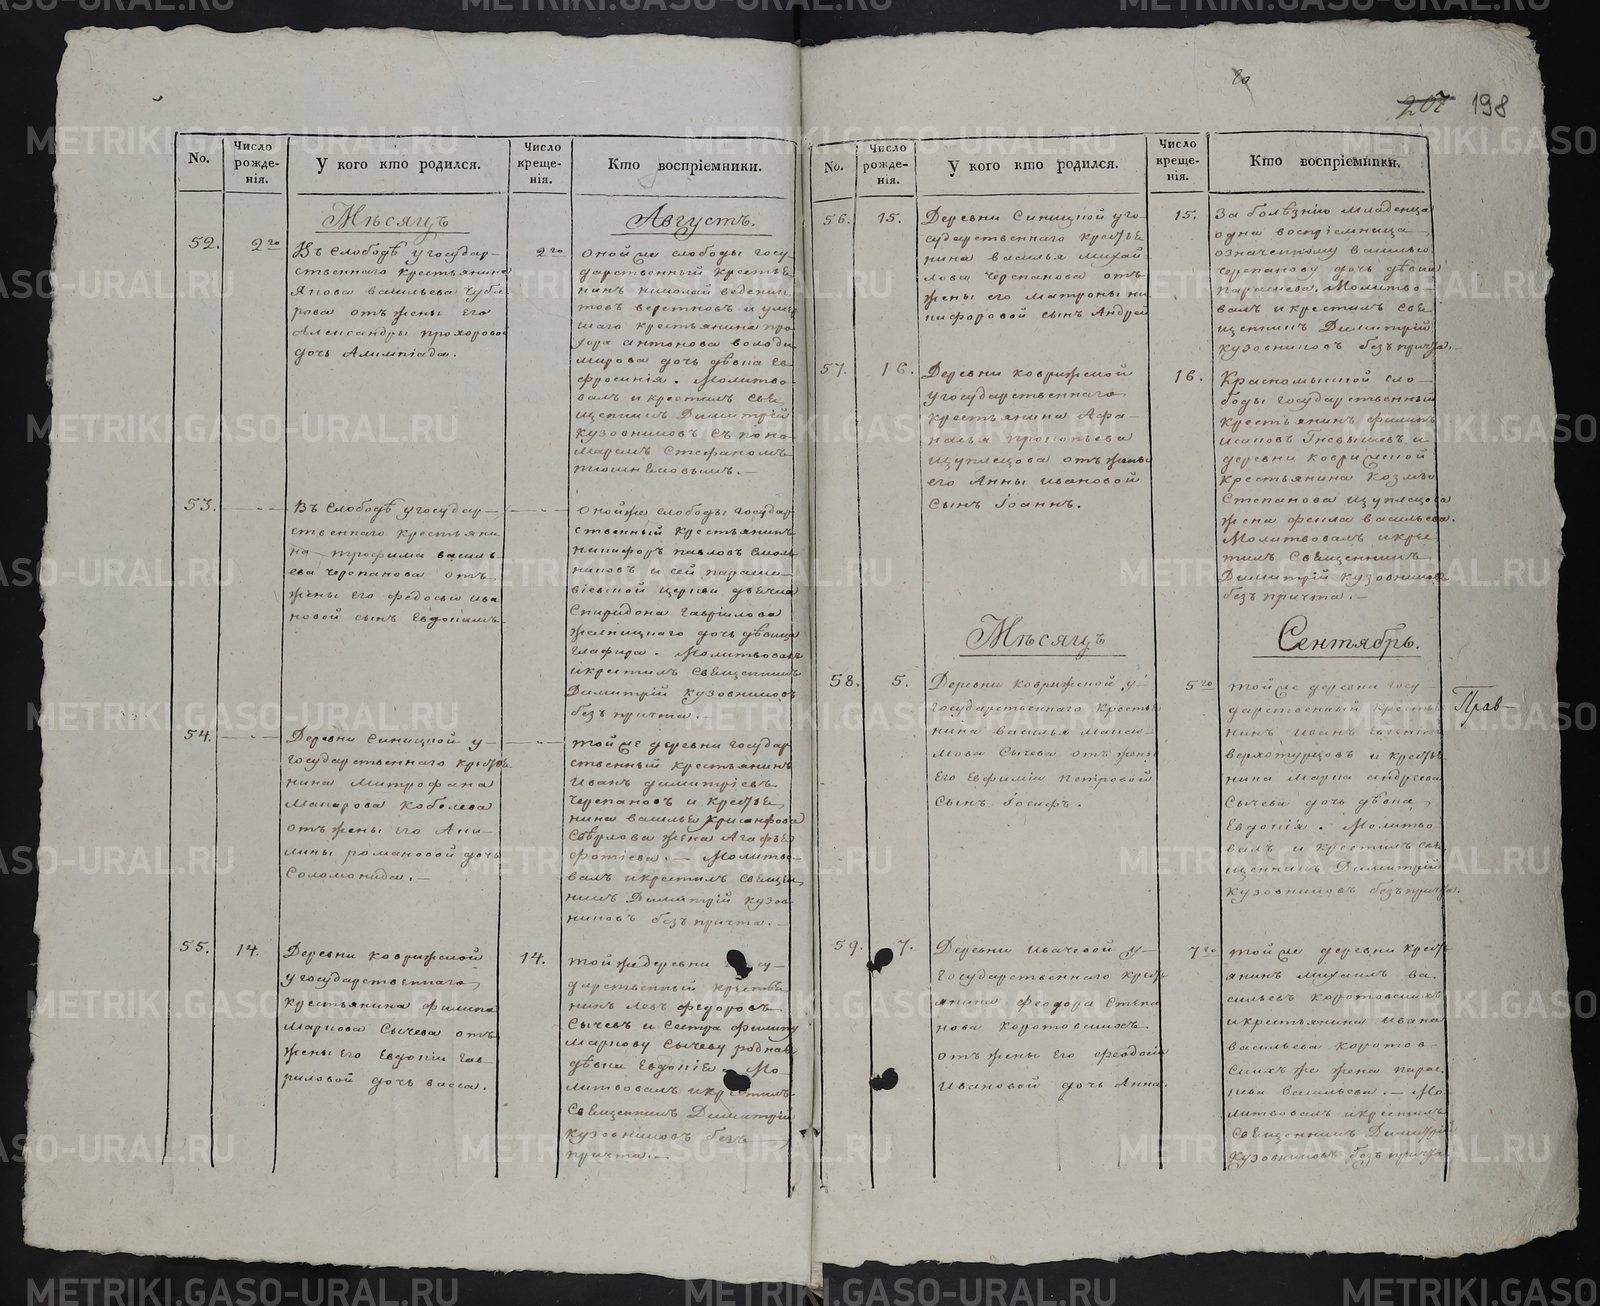 198
No.
Число рожде-нія.
У кого кто родился.
Число креще-нія.
Кто воспріемники.
Мѣсяцъ
Августъ.
52.
2го
Въ слободѣ у государ-
ственнаго крестьянина
Якова васильева
отъ жены его
Александры прохоровой
дочь Алимпіада.
2го
оной же слободы госу-
дарственный крестья
нинъ николай
и умер
шаго крестьянина про
хора антонова володи
мирова дочь дѣвка ев
фросинія. Молитво-
валъ и крестилъ свя
щенникъ Димитрій
кузовниковъ съ поно
маремъ Стефаномъ
53.
Въ слободѣ у государ-
ственнаго крестьяни
на трофима василь
ева черепанова отъ
жены его федосьи ива
новой сынъ Евдокимъ.
оной же слободы государ
ственный крестьянинъ
никифоръ павловъ
и сей параске
віевской церкви дьячка
Спиридона гавріилова
дочь дѣвица
глафира. Молитвовалъ
и крестилъ священникъ
Димитрій кузовниковъ
безъ причта.—
54.
Деревни синицкой у-
государственнаго крестья
нина митрофана
макарова кобелева
отъ жены его Аки-
лины романовой дочь
Соломонида.—
той же деревни государ
ственный крестьянинъ
Иванъ димитріевъ
Черепановъ и крестья
нина василья
жена Агафья
фотіева.— Молитво-
валъ и крестилъ священ
никъ Димитрій кузов
никовъ безъ причта.—
55.
14.
Деревни коврижской
у государственнаго
крестьянина филипа
маркова Сычева отъ
жены его Евдокіи гав-
риловой дочь васса.
14.
той же деревни госу-
дарственный крестья
нинъ левъ федоровъ
Сычевъ и сестра филипу
маркову Сычеву родная
дѣвка Евдокія. Мо-
литвовалъ и крестилъ
Священникъ Димитрій
кузовниковъ безъ
причта.—
No.
Число рожде-нія.
У кого кто родился.
Число креще-нія.
Кто воспріемники.
56.
15.
Деревни Синицкой у го-
сударственнаго крестья
нина василья михай
лова черепанова отъ
жены его матроны ни
кифоровой сынъ Андрей
15.
За болѣзнію младенца
одна воспріемница
означенному василью
черепанову дочь дѣвка
параскева. Молитво-
валъ и крестилъ свя
щенникъ Димитрій
кузовниковъ безъ причта.—
57.
16.
Деревни коврижской
у государственнаго
крестьянина Афа-
насья прокопьева
щуплецова отъ жены
его Анны ивановой
Сынъ Іоаннъ.
16.
Красномысской сло-
боды государственный
крестьянинъ филипъ
исаковъ Гневышевъ и
деревни коврижской
крестьянина козмы
Степанова щуплецова
жена фекла васильева.
Молитвовалъ и кре
стилъ Священникъ
Димитрій кузовниковъ
безъ причта.—
Мѣсяцъ
Сентябрь.
58.
5.
Деревни коврижской у
государственнаго крестья
нина василья макси
мова Сычева отъ жены
Его Евфиміи петровой
Сынъ Іосифъ.
5го
той же деревни госу-
дарственный крестья
нинъ иванъ
верхотурцовъ и крестья
нина марка андреева
Сычева дочь дѣвка
Евдокія. Молитво
валъ и крестилъ свя
щенникъ Димитрій
кузовниковъ безъ причта.
59.
7.
Деревни ивачевой у-
государственнаго крест
янина феодора Степа
нова коротовскихъ
отъ жены его феодосіи
Ивановой дочь Анна.
7го
той же деревни крест
янинъ михаилъ ва-
сильевъ коротовскихъ
и крестьянина ивана
васильева коротов-
скихъ же жена парас
кева васильева.— Мо
литвовалъ и крестилъ
священникъ Димитрій
кузовниковъ безъ причта